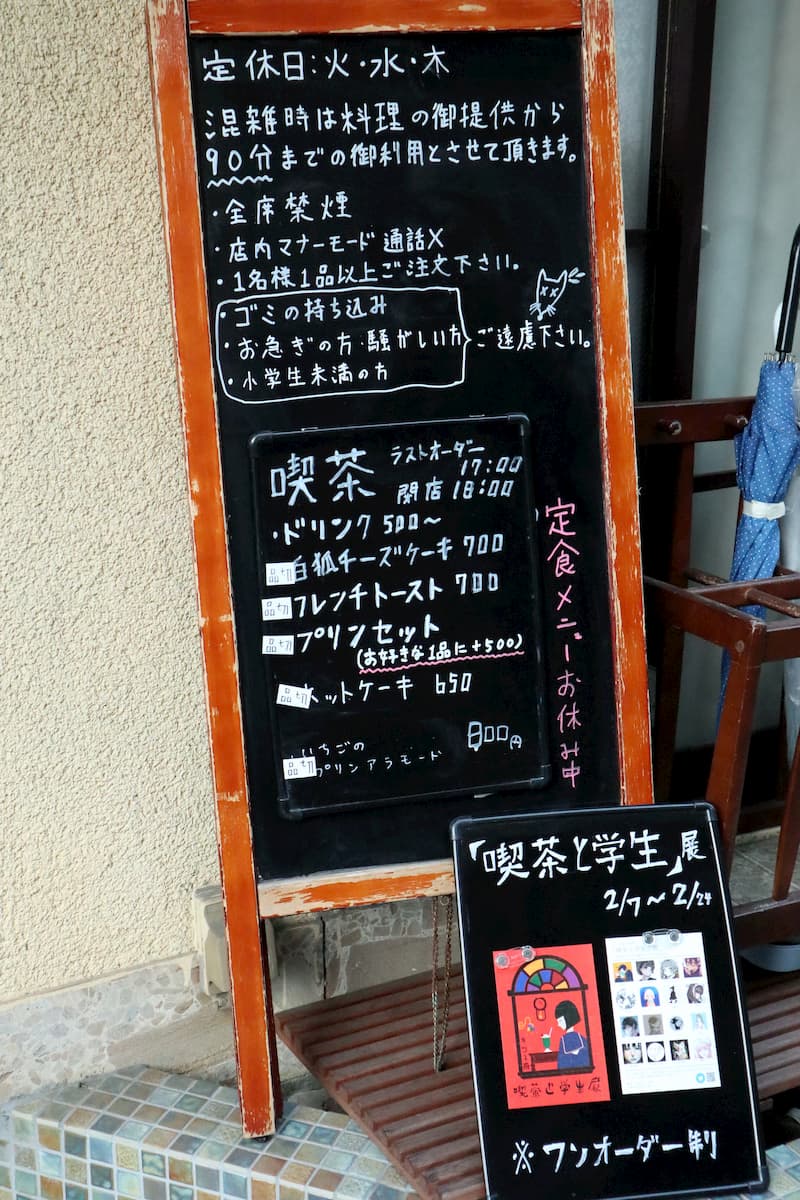 定休日:火・水・木
混雑時は料理の御提供から
90分までの御利用とさせて頂きます。
・全席禁煙
・店内マナーモード 通話×
・1名様1品以上ご注文下さい。
・ゴミの持ち込み
・お急ぎの方・騒がしい方
・小学生未満の方
ご遠慮下さい。
喫茶
ラストオーダー
17:00
閉店 18:00
・ドリンク 500〜
品切 白狐チーズケーキ 700
品切 フレンチトースト 700
品切 プリンセット
(お好きな1品に+500)
品切 ホットケーキ 650
いちごの
品切 プリンアラモード
800円
定食メニューお休み中
「喫茶と学生」展
2/7〜2/24
喫茶と学生展
※ワンオーダー制